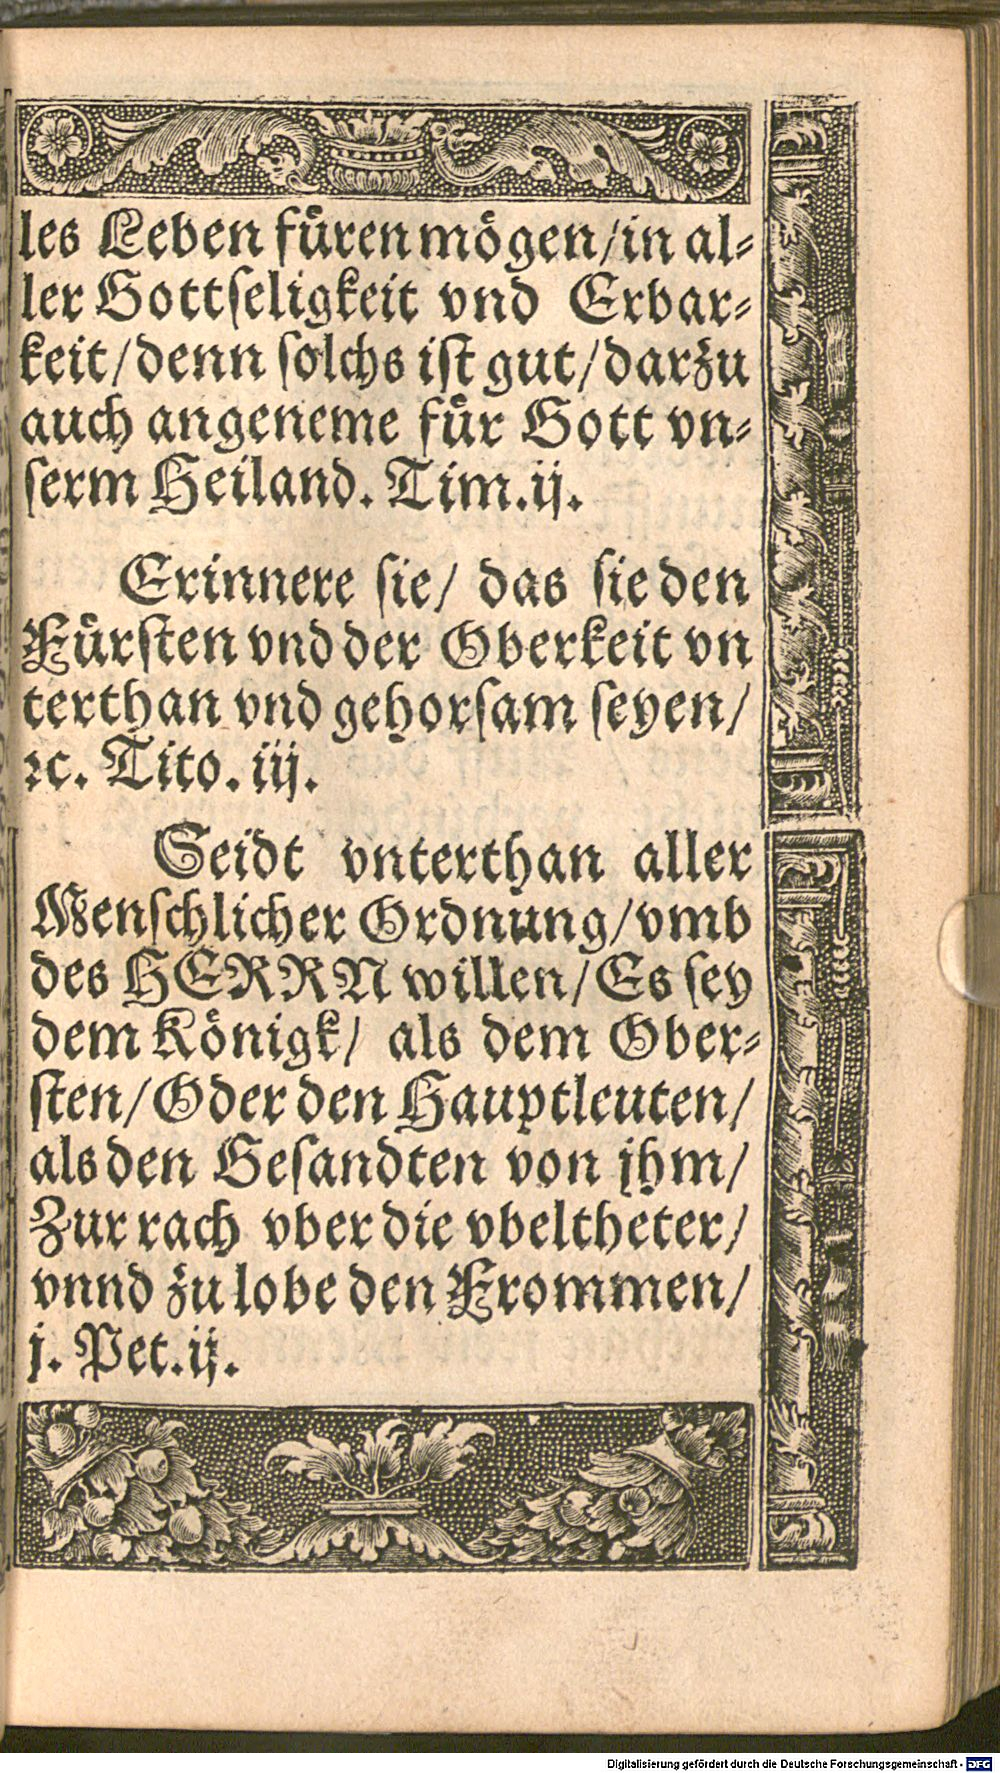 les Leben fuͤren moͤgen/in al⸗
ler Gottſeligkeit vnd Erbar⸗
keit/denn ſolchs iſt gut/darzu
auch angeneme fuͤr Gott vn⸗
ſerm Heiland. Tim.ij.
Erinnere ſie/ das ſie den
Fuͤrſten vnd der Oberkeit vn
terthan vnd gehorſam ſeyen/
ꝛc. Tito. iij.
Seidt vnterthan aller
Menſchlicher Ordnung/vmb
des HERRN willen/Es ſey
dem Koͤnigk/ als dem Ober⸗
ſten/Oder den Hauptleuten/
als den Geſandten von jhm/
Zur rach vber die vbeltheter/
vnnd zu lobe den Frommen/
j. Pet.ij.
Digitalisierung gefördert durch die Deutsche Forschungsgemeinschaft - DFG